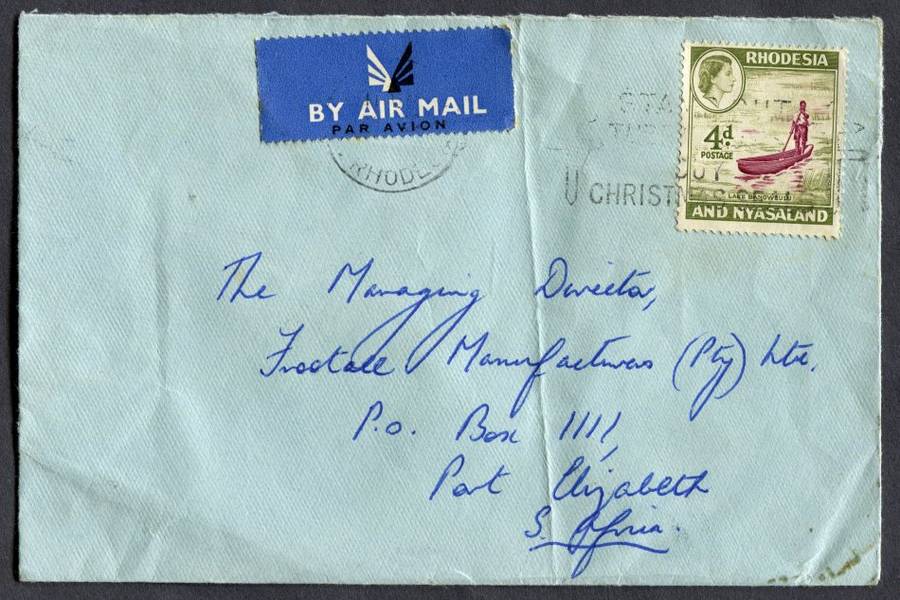 BY AIR MAIL
PAR AVION
RHODE
RHODESIA
4d
POSTAGE
LAKE BANGWEULU
AND NYASALAND
CHRIST
The Managing Director,
Manufacturers (Pty) Ltd.
P.O. Box 1111,
Port Elizabeth
S. Africa.